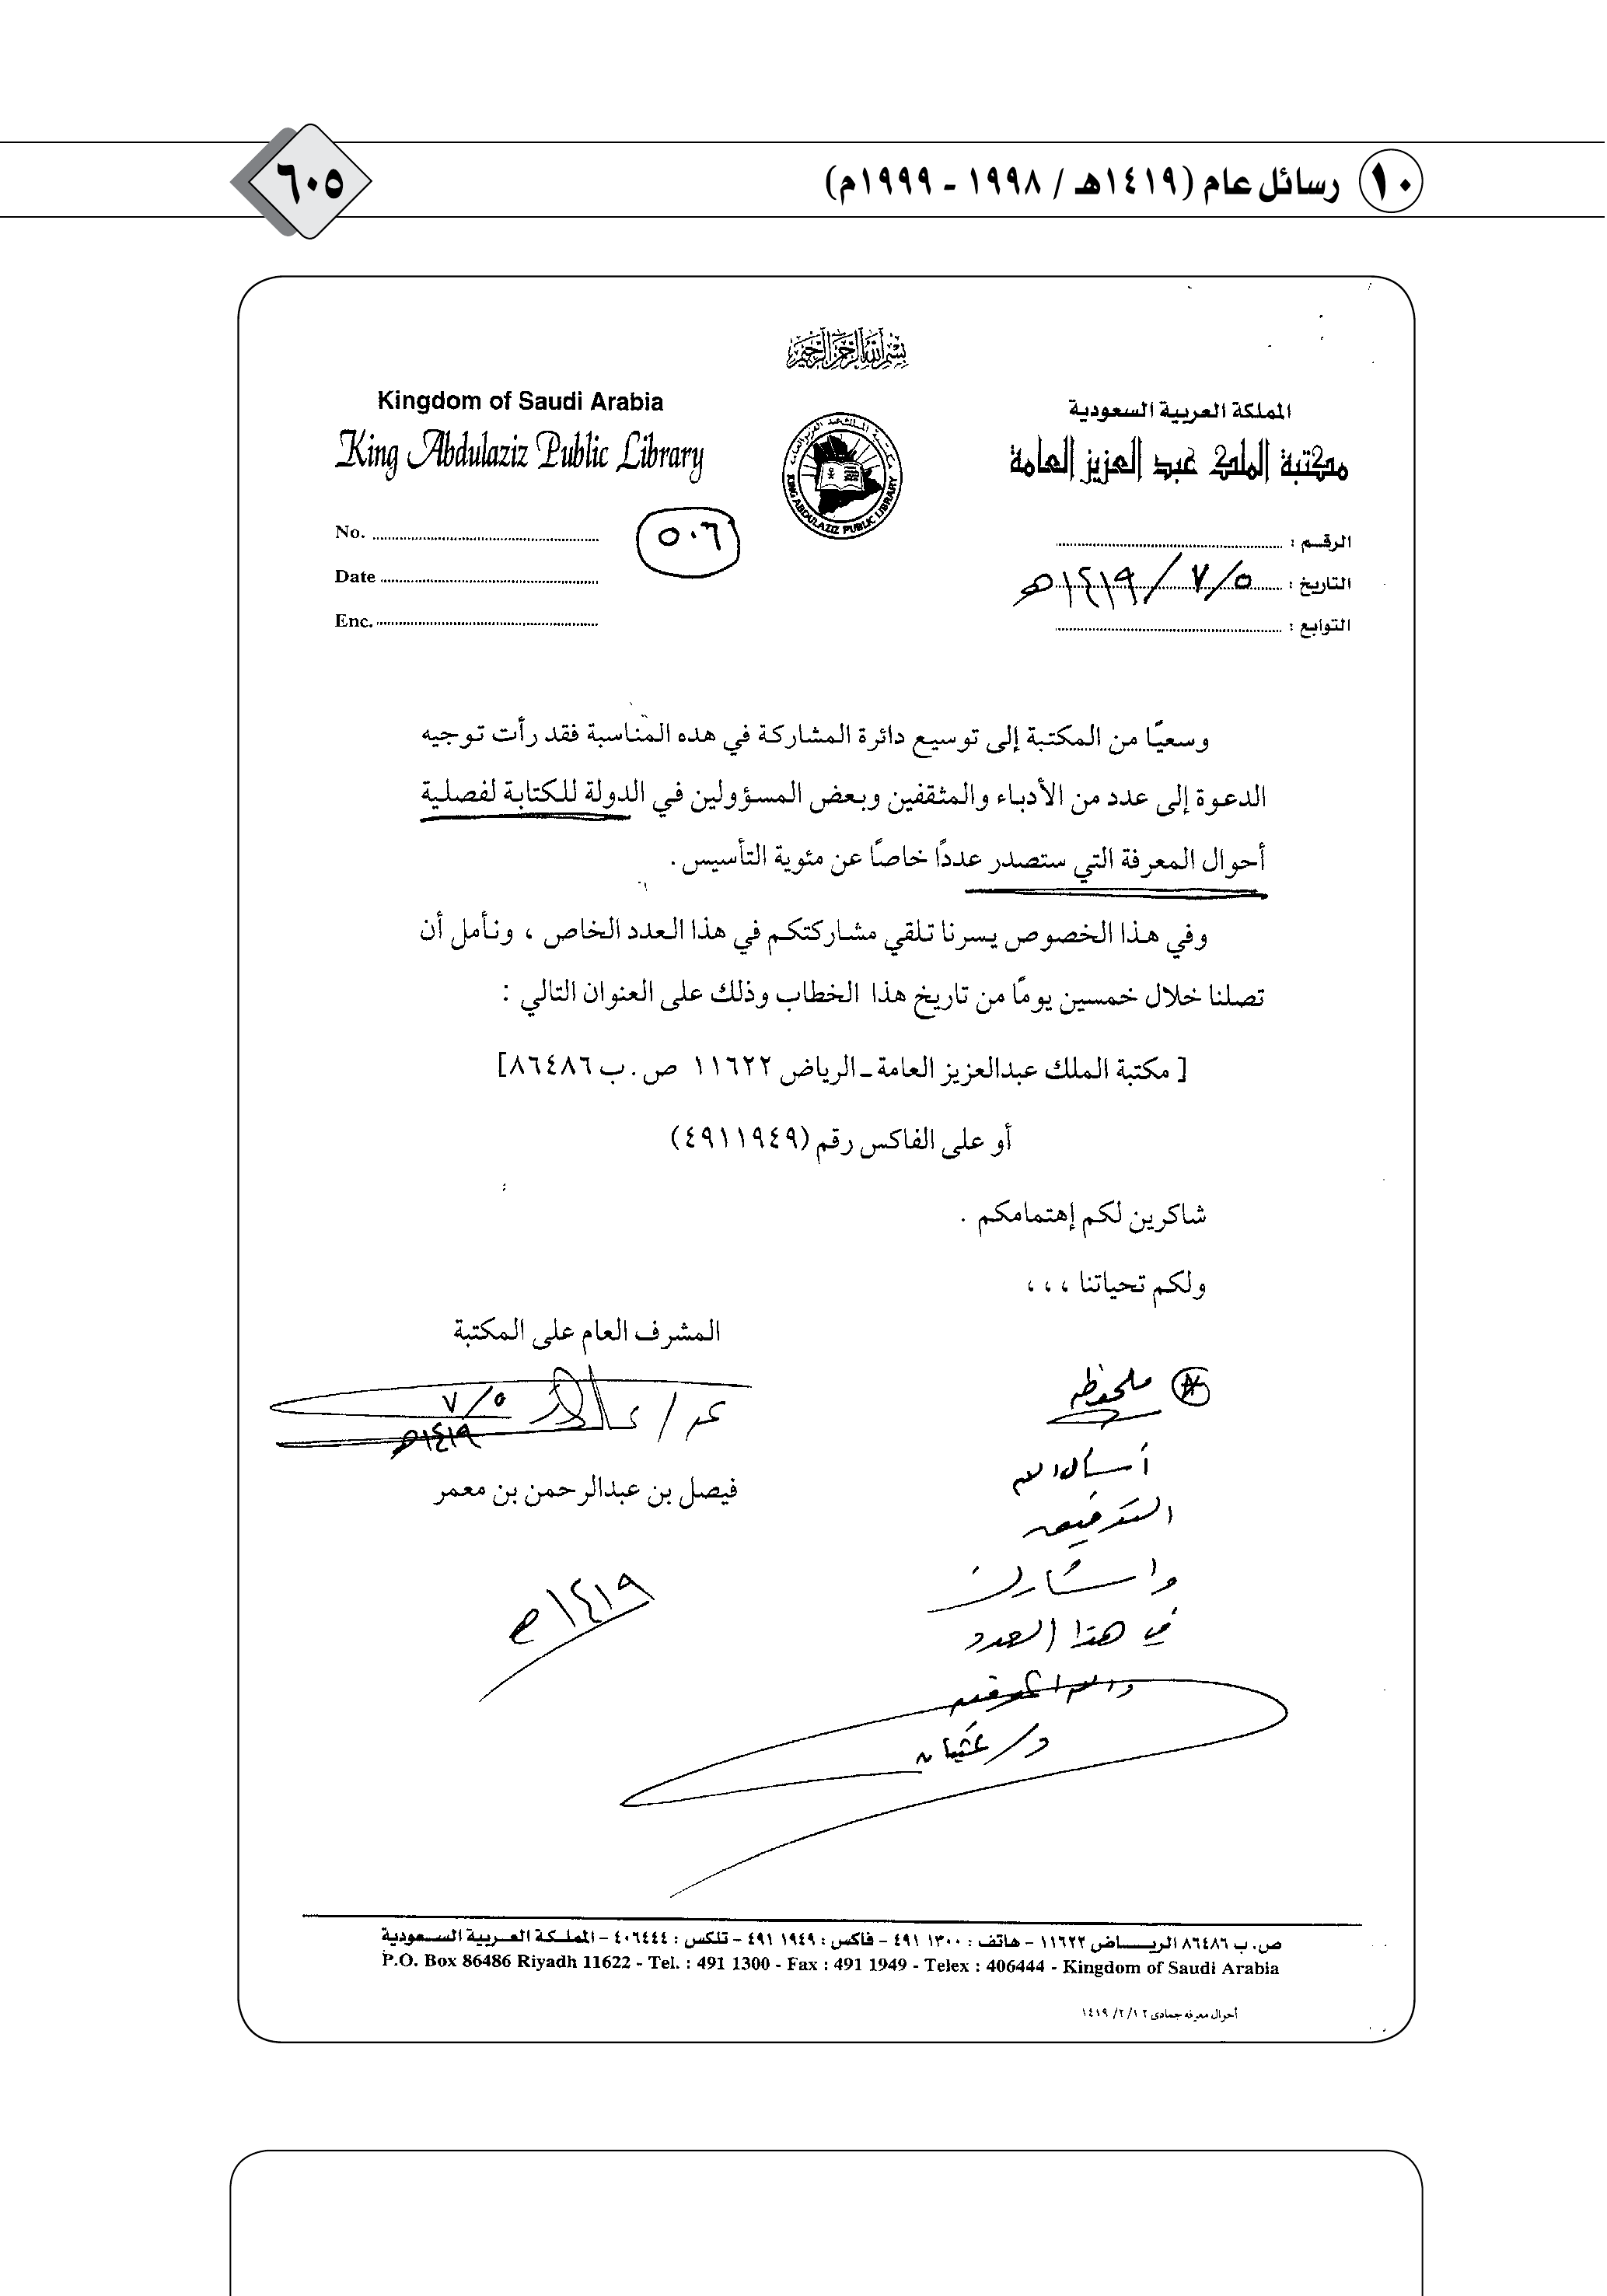 ١٠ رسائل عام (١٤١٩هـ / ١٩٩٨ - ١٩٩٩م)
٦٠٥
بسم الله الرحمن الرحيم
المملكة العربية السعودية
مكتبة الملك عبد العزيز العامة
Kingdom of Saudi Arabia
King Abdulaziz Public Library
مكتبة الملك عبد العزيز العامة
KING ABDULAZIZ PUBLIC LIBRARY
الرقم :
التاريخ : ٥/٧/١٤١٩هـ
التوابع :
٥٠٦
No.
Date
Enc.
وسعيًا من المكتبة إلى توسيع دائرة المشاركة في هذه المناسبة فقد رأت توجيه
الدعوة إلى عدد من الأدباء والمثقفين وبعض المسؤولين في الدولة للكتابة لفصلية
أحوال المعرفة التي ستصدر عددًا خاصًا عن مئوية التأسيس .
وفي هذا الخصوص يسرنا تلقي مشاركتكم في هذا العدد الخاص ، ونأمل أن
تصلنا خلال خمسين يومًا من تاريخ هذا الخطاب وذلك على العنوان التالي :
[ مكتبة الملك عبدالعزيز العامة ـ الرياض ١١٦٢٢ ص . ب ٨٦٤٨٦]
أو على الفاكس رقم (٤٩١١٩٤٩)
شاكرين لكم إهتمامكم .
ولكم تحياتنا ، ، ،
المشرف العام على المكتبة
٥/٧
١٤١٩هـ
فيصل بن عبدالرحمن بن معمر
١٤١٩هـ
ملحوظه
أسأل الله
التوفيق
وأشارك
في هذا العدد
والله الموفق
د/ عثمان
ص. ب ٨٦٤٨٦ الريـــاض ١١٦٢٢ - هاتف : ١٣٠٠ ٤٩١ - فاكس : ١٩٤٩ ٤٩١ - تلكس : ٤٠٦٤٤٤ - المملكة العربية السعودية
P.O. Box 86486 Riyadh 11622 - Tel. : 491 1300 - Fax : 491 1949 - Telex : 406444 - Kingdom of Saudi Arabia
أحوال معرفه جمادى ١٢/ ٢/ ١٤١٩